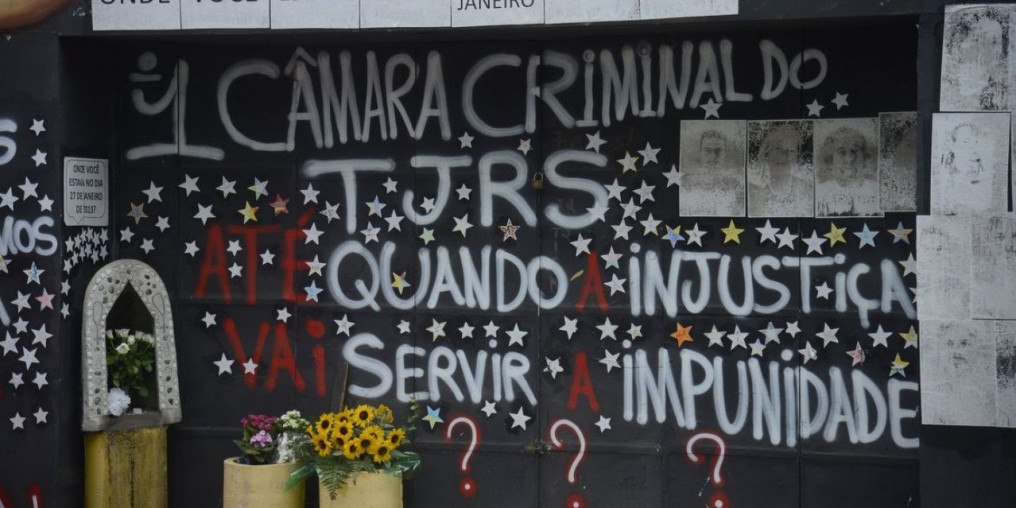 ONDE VOCÊ
JANEIRO
1ª CÂMARA CRIMINAL DO
TJRS
ATÉ QUANDO A INJUSTIÇA
VAI SERVIR A IMPUNIDADE
? ? ?
ONDE VOCÊ
ESTAVA NO DIA
27 DE JANEIRO
DE 2013?
MOS